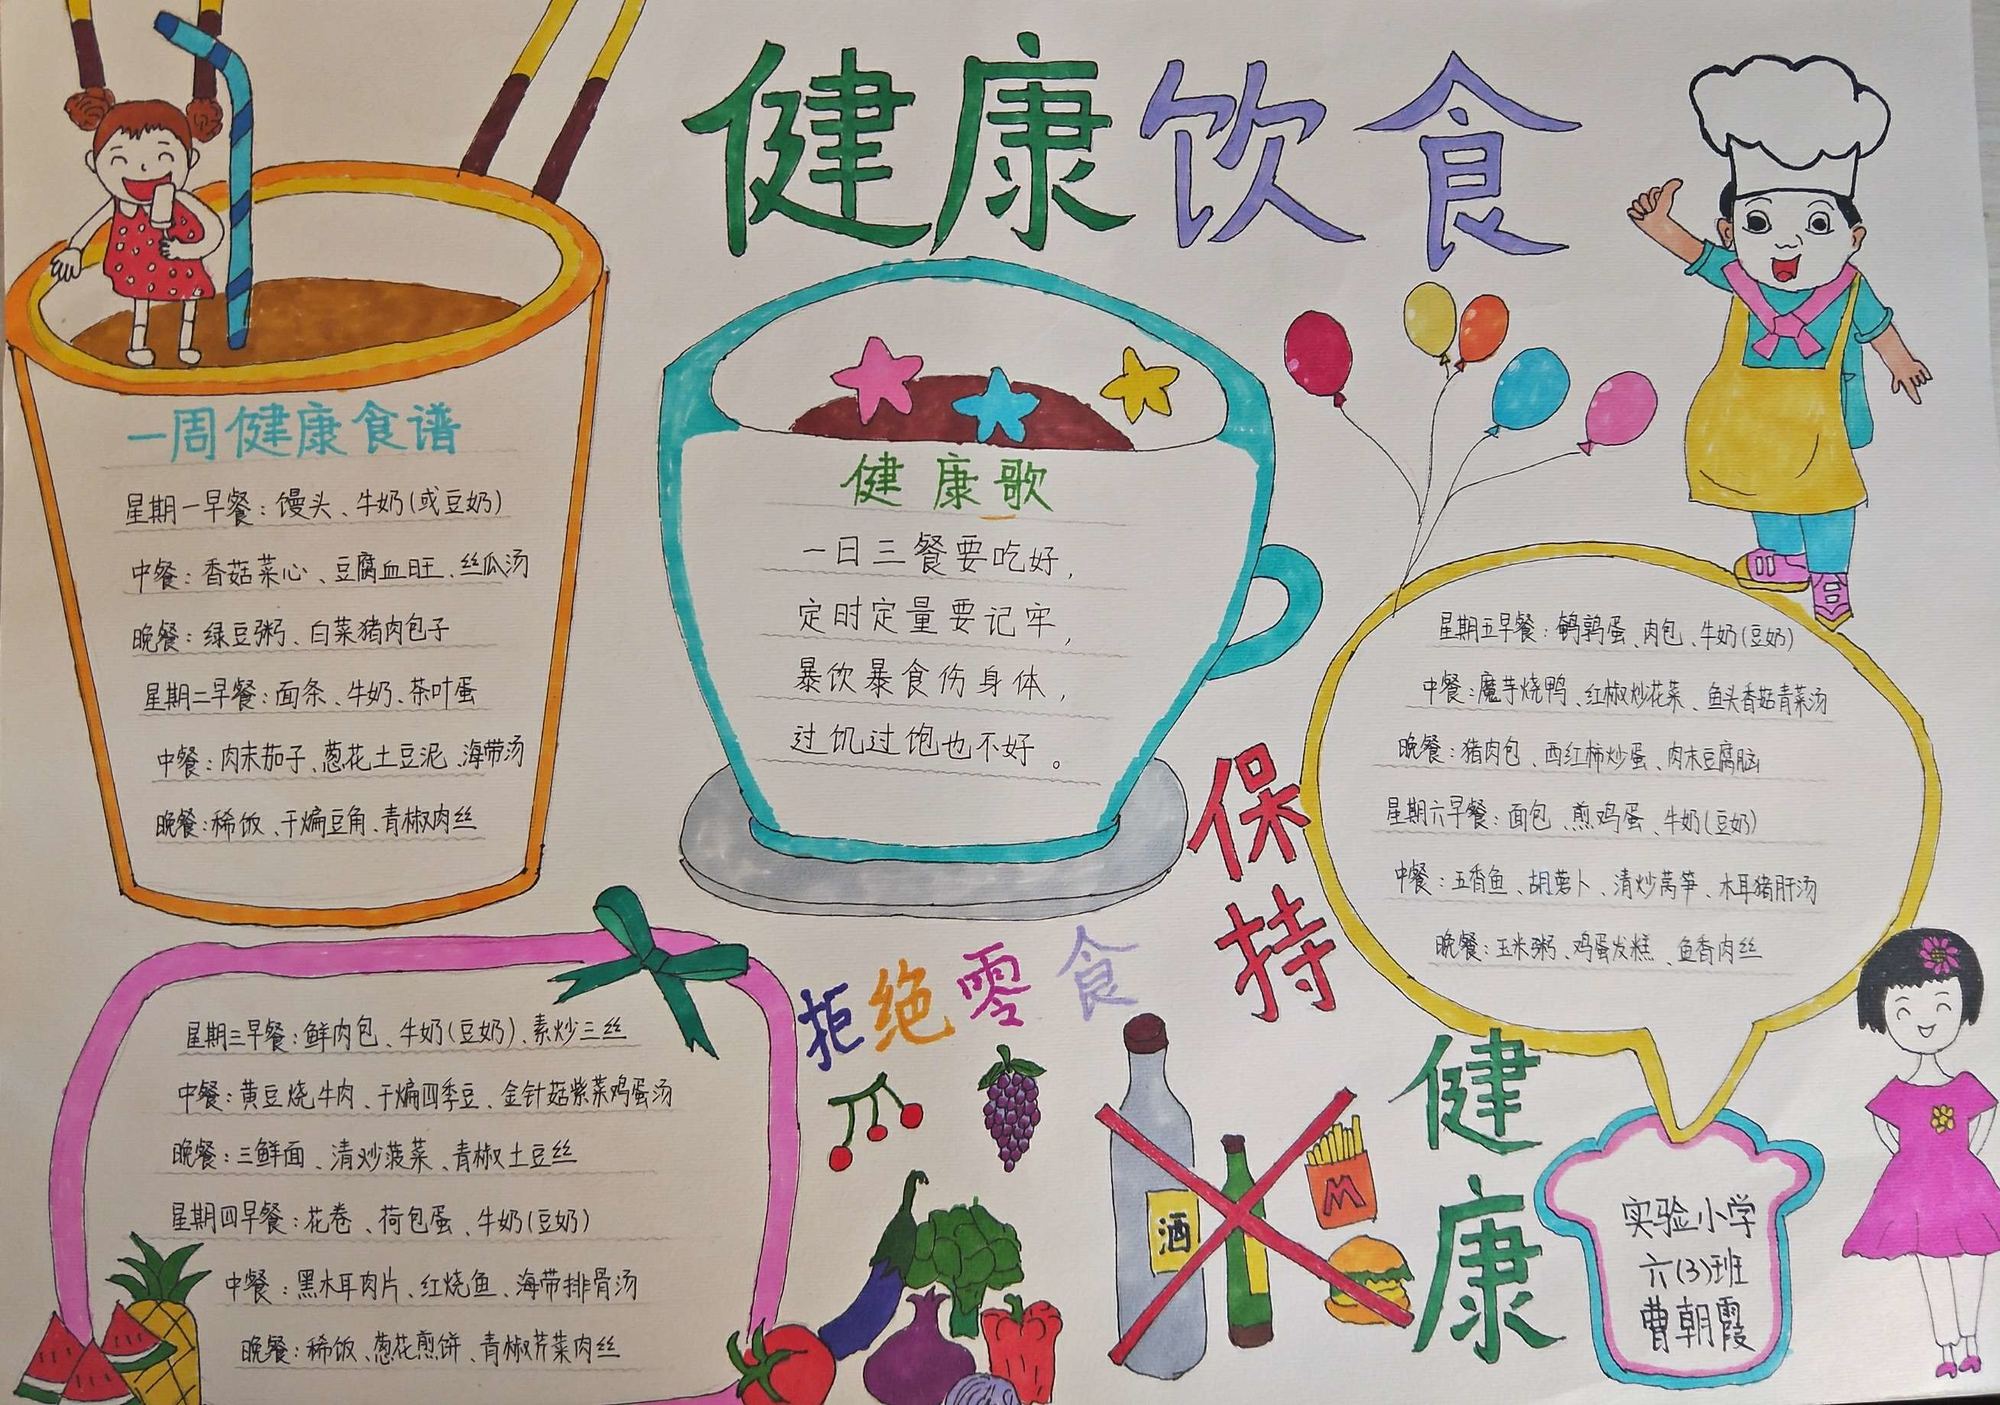 健康饮食
一周健康食谱
星期一早餐：馒头、牛奶(或豆奶)
中餐：香菇菜心、豆腐血旺、丝瓜汤
晚餐：绿豆粥、白菜猪肉包子
星期二早餐：面条、牛奶、茶叶蛋
中餐：肉末茄子、葱花土豆泥、海带汤
晚餐：稀饭、干煸豆角、青椒肉丝
健康歌
一日三餐要吃好，
定时定量要记牢，
暴饮暴食伤身体，
过饥过饱也不好。
星期三早餐：鲜肉包、牛奶(豆奶)、素炒三丝
中餐：黄豆烧牛肉、干煸四季豆、金针菇紫菜鸡蛋汤
晚餐：三鲜面、清炒菠菜、青椒土豆丝
星期四早餐：花卷、荷包蛋、牛奶(豆奶)
中餐：黑木耳肉片、红烧鱼、海带排骨汤
晚餐：稀饭、葱花煎饼、青椒芹菜肉丝
星期五早餐：鹌鹑蛋、肉包、牛奶(豆奶)
中餐：魔芋烧鸭、红椒炒花菜、鱼头香菇青菜汤
晚餐：猪肉包、西红柿炒蛋、肉末豆腐脑
星期六早餐：面包、煎鸡蛋、牛奶(豆奶)
中餐：五香鱼、胡萝卜、清炒莴笋、木耳猪肝汤
晚餐：玉米粥、鸡蛋发糕、鱼香肉丝
拒绝零食
保持
健康
酒
M
实验小学
六(3)班
曹朝霞